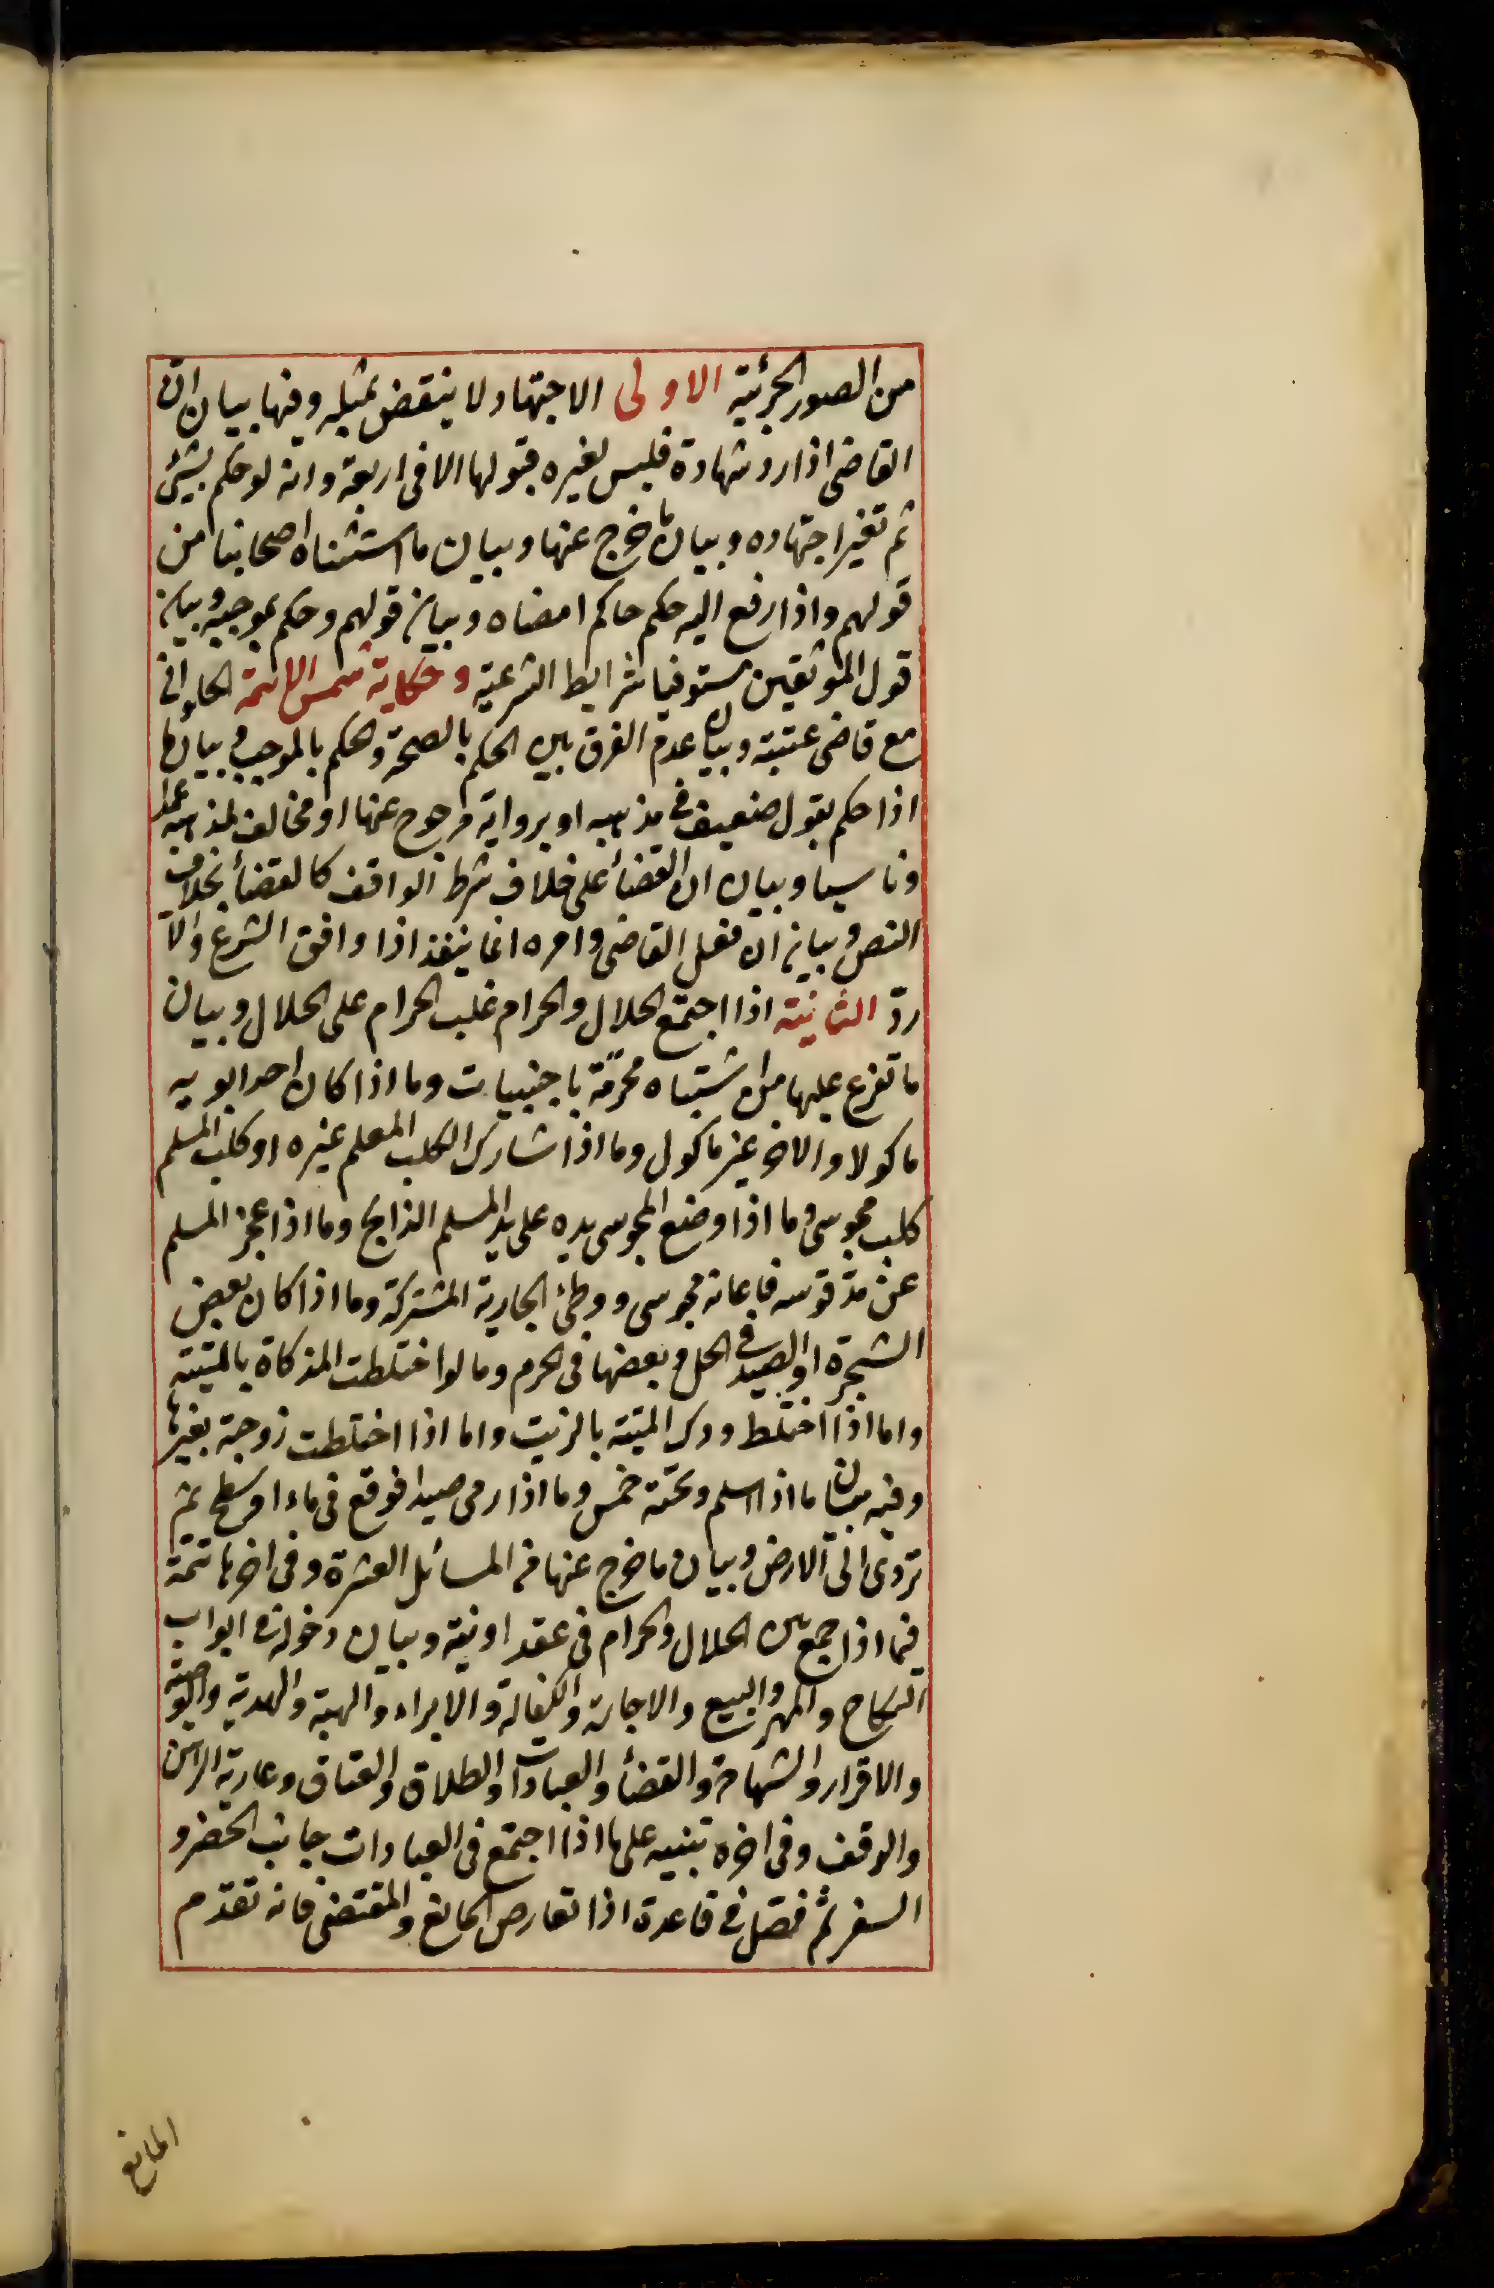 من الصور الجزئية الاولى الاجتهاد لا ينقض بمثله وفيها بيان ان
القاضى اذا رد شهادة فليس لغيره قبولها الا فى اربعة وانه لو حكم بشيئ
ثم تغير اجتهاده وبيان ما خرج عنها وبيان ما استثناه اصحابنا من
قولهم واذا رفع اليه حكم حاكم امضاه وبيان قولهم وحكم بموجبه وبيان
قول الموثقين مستوفيا شرايط الشرعية وحكاية شمس الائمة الحلوانى
مع قاضى عنبتة وبيان عدم الفرق بين الحكم بالصحة وحكم بالموجب وبيان ما
اذا حكم بقول ضعيف فى مذهبه او برواية مرجوح عنها او مخالف لمذهبه عمدا
وناسيا وبيان ان القضأ على خلاف شرط الواقف كالقضأ بخلاف
النص وبيان ان فعل القاضى وامره انما ينفذ اذا وافق الشرع والا
ردّ الثانية اذا اجتمع الحلال والحرام غلب الحرام على الحلال وبيان
ما تفرع عليها من اشتباه محرمة باجنبيات وما اذا كان احد ابويه
ماكولا والاخر غير ماكول وما اذا شارك الكلب المعلم غيره او كلب المسلم
كلب مجوسى وما اذا وضع المجوسى يده على يد المسلم الذابح وما اذا عجز المسلم
عن مدّ قوسه فاعانه مجوسى ووطئ الجارية المشتركة وما اذا كان بعض
الشجرة او الصيد فى الحل وبعضها فى الحرم وما لو اختلطت المذكاة بالميتة
واما اذا اختلط ودك الميتة بالزيت واما اذا اختلطت زوجته بغيرها
وفيه بيان ما اذا اسلم وتحته خمس وما اذا رمى صيدا فوقع فى ماء او سطح ثم
تردى الى الارض وبيان ما خرج عنها من المسائل العشرة وفى اخرها تتمة
فيما اذا جمع بين الحلال والحرام فى عقد او نية وبيان دخوله فى ابواب
النكاح والمهر والبيع والاجارة والكفالة والابراء والهبة والهدية والوصية
والاقرار والشهادة والقضأ والعبادات والطلاق والعتاق وعارية الرهن
والوقف وفى اخره تنبيه على ما اذا اجتمع فى العبادات جانب الحضر و
السفر ثم فصل فى قاعدة اذا تعارض المانع والمقتضى فانه تقدم
المانع